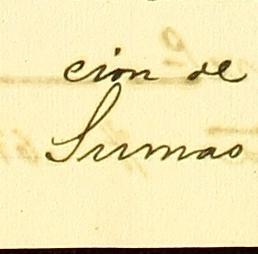 cion de
Sumas